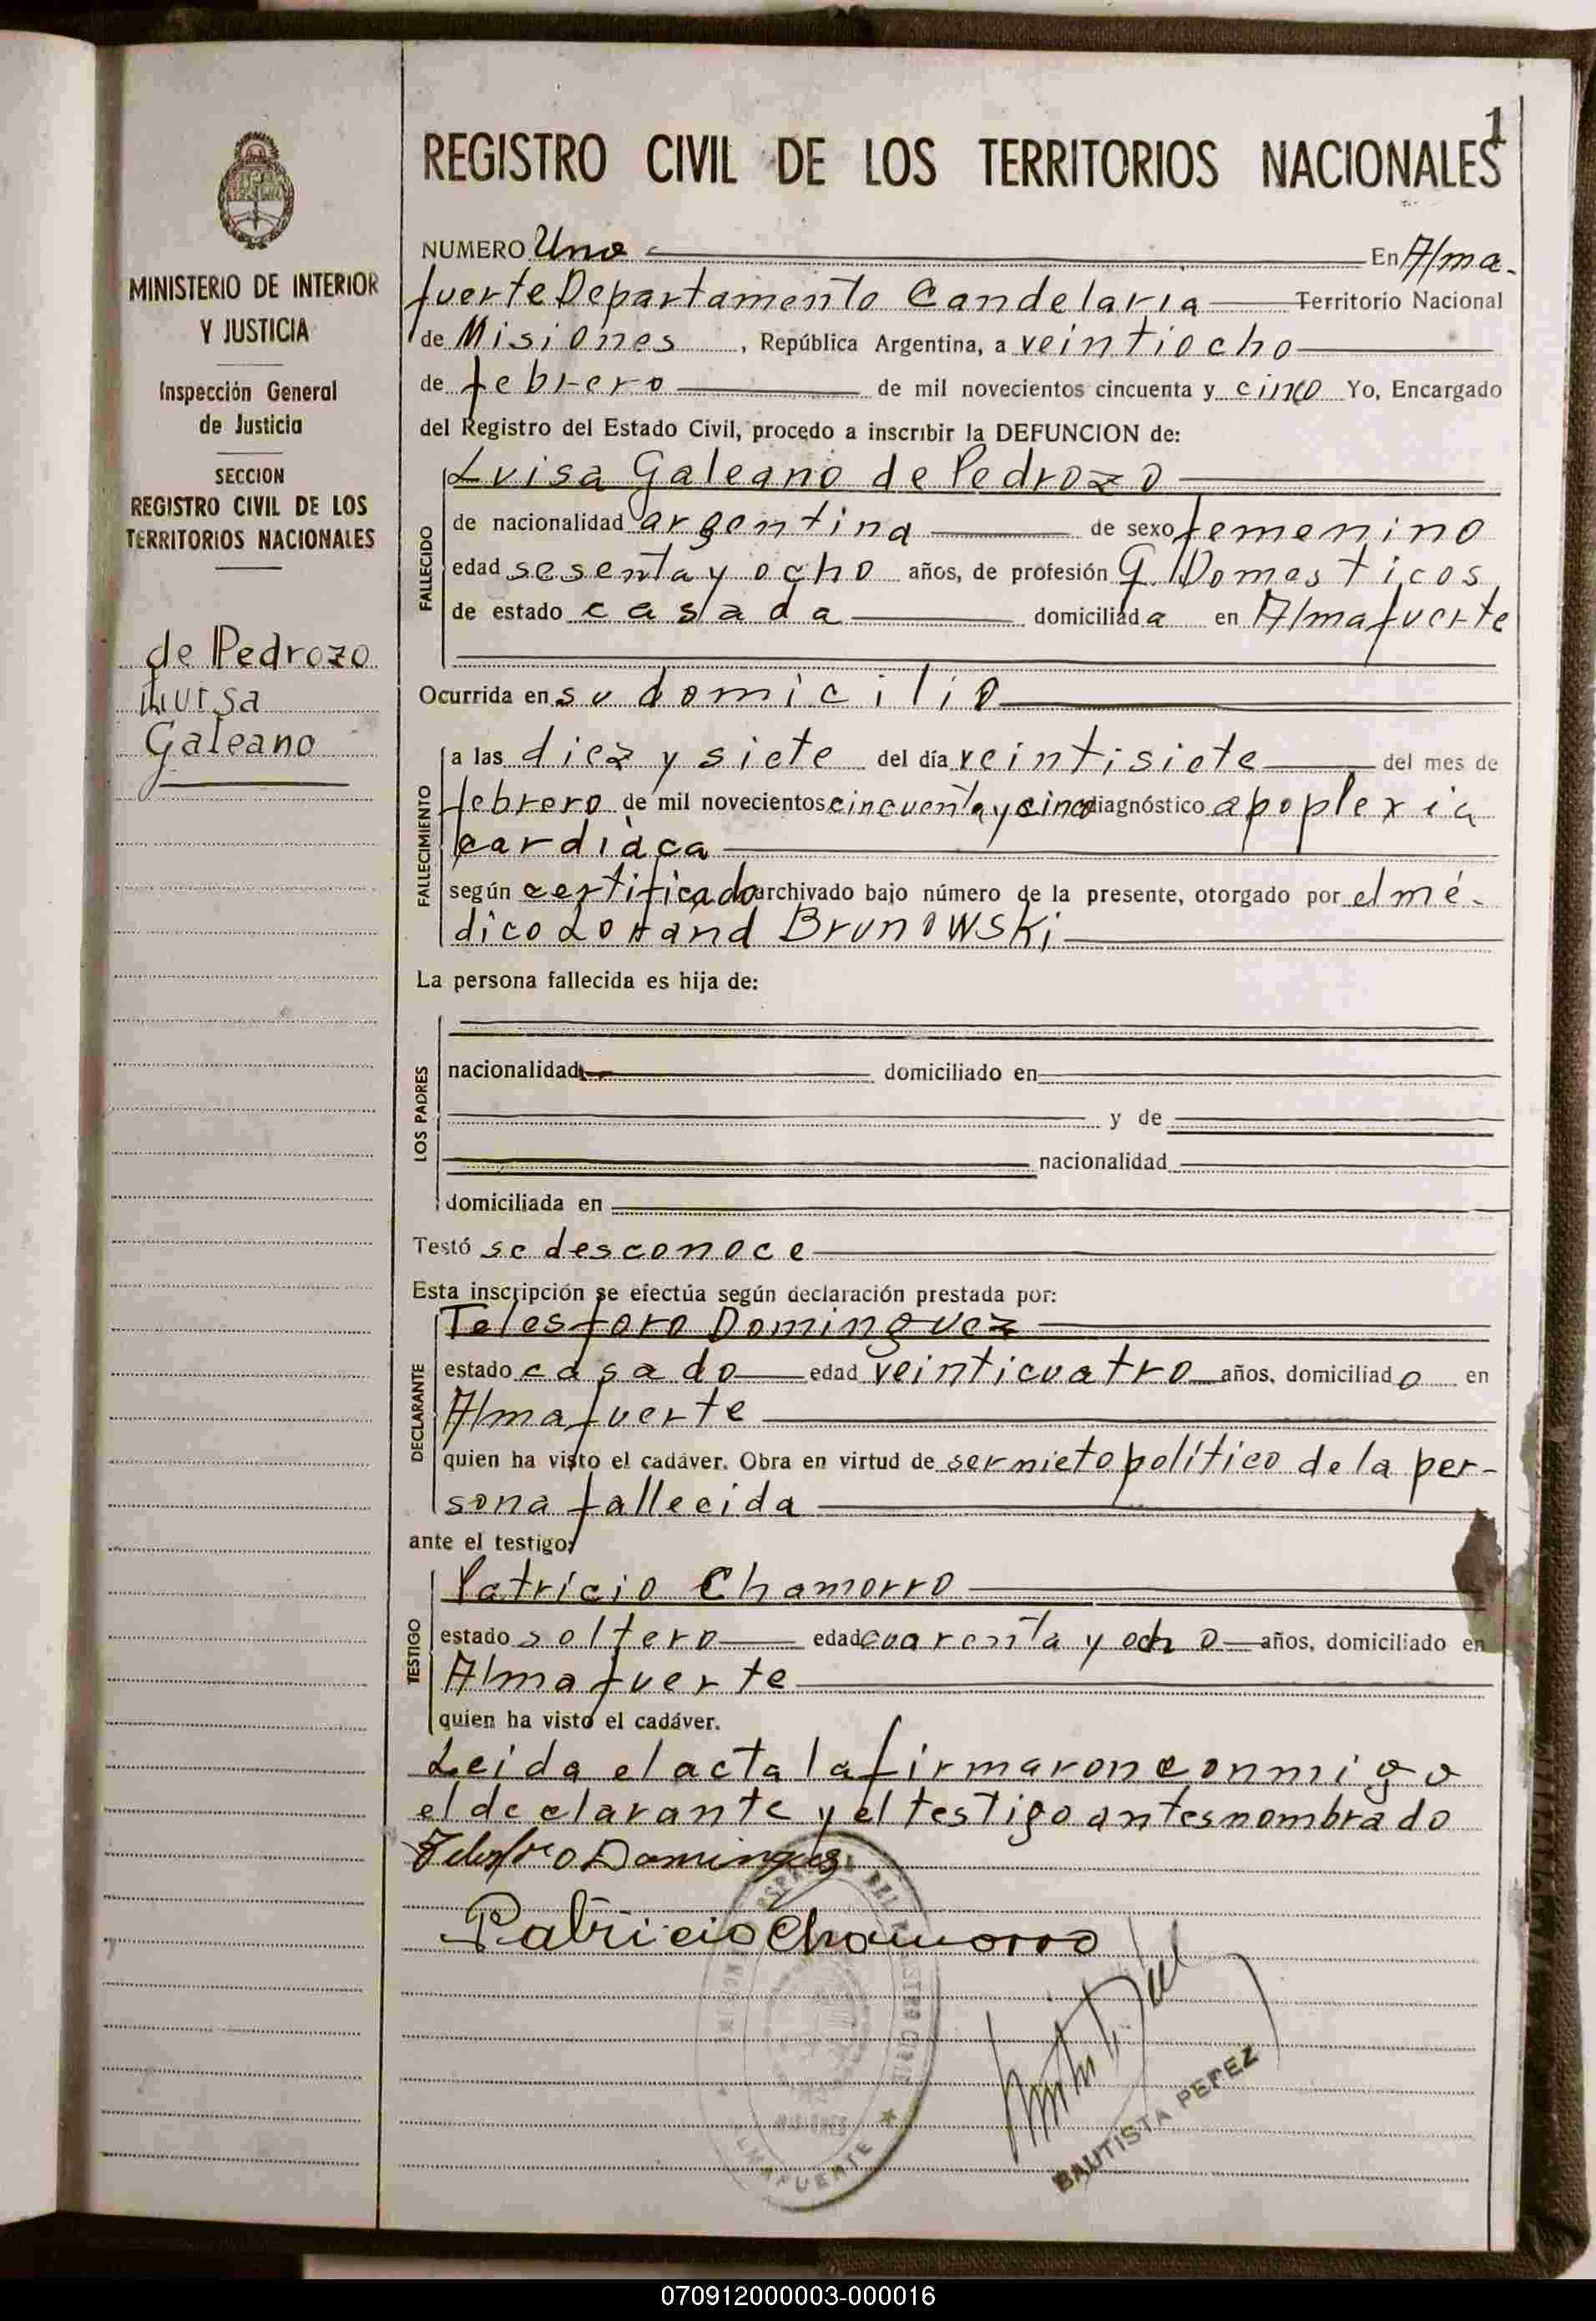 1
REGISTRO CIVIL DE LOS TERRITORIOS NACIONALES
MINISTERIO DE INTERIOR
Y JUSTICIA
Inspección General
de Justicia
SECCION
REGISTRO CIVIL DE LOS
TERRITORIOS NACIONALES
de Pedrozo
Luisa
Galeano
NUMERO Uno En Alma-
fuerte Departamento Candelaria Territorio Nacional
de Misiones, República Argentina, a veintiocho
de febrero de mil novecientos cincuenta y cinco Yo, Encargado
del Registro del Estado Civil, procedo a inscribir la DEFUNCION de:
FALLECIDO
Luisa Galeano de Pedrozo
de nacionalidad argentina de sexo femenino
edad sesenta y ocho años, de profesión Q. Domesticos
de estado casada domiciliada en Almafuerte
Ocurrida en su domicilio
FALLECIMIENTO
a las diez y siete del día veintisiete del mes de
febrero de mil novecientos cincuenta y cinco diagnóstico apoplexia
cardiàca
según certificado archivado bajo número de la presente, otorgado por el mé-
dico Brunowski
La persona fallecida es hija de:
LOS PADRES
nacionalidad domiciliado en
y de
nacionalidad
domiciliada en
Testó se desconoce
Esta inscripción se efectúa según declaración prestada por:
DECLARANTE
Telesforo Dominguez
estado casado edad veinticuatro años, domiciliado en
Almafuerte
quien ha visto el cadáver. Obra en virtud de ser nieto político de la per-
sona fallecida
ante el testigo:
TESTIGO
Patricio Chamorro
estado soltero edad cuarenta y ocho años, domiciliado en
Almafuerte
quien ha visto el cadáver.
Leida el acta la firmaron conmigo
el declarante y el testigo antes nombrado
Telesforo Dominguez
Patricio Chamorro
ALMAFUERTE
BAUTISTA PEREZ
070912000003-000016